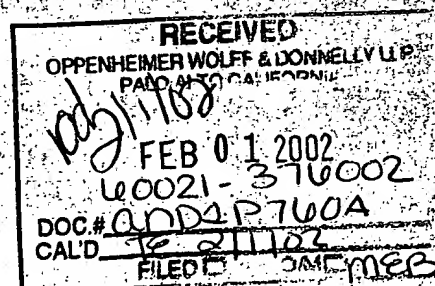 RECEIVED
OPPENHEIMER WOLFF & DONNELLY LLP
PALO ALTO CALIFORNIA
FEB 01 2002
60021-376002
DOC.# AND1P760A
CAL'D 2/1/02
FILED